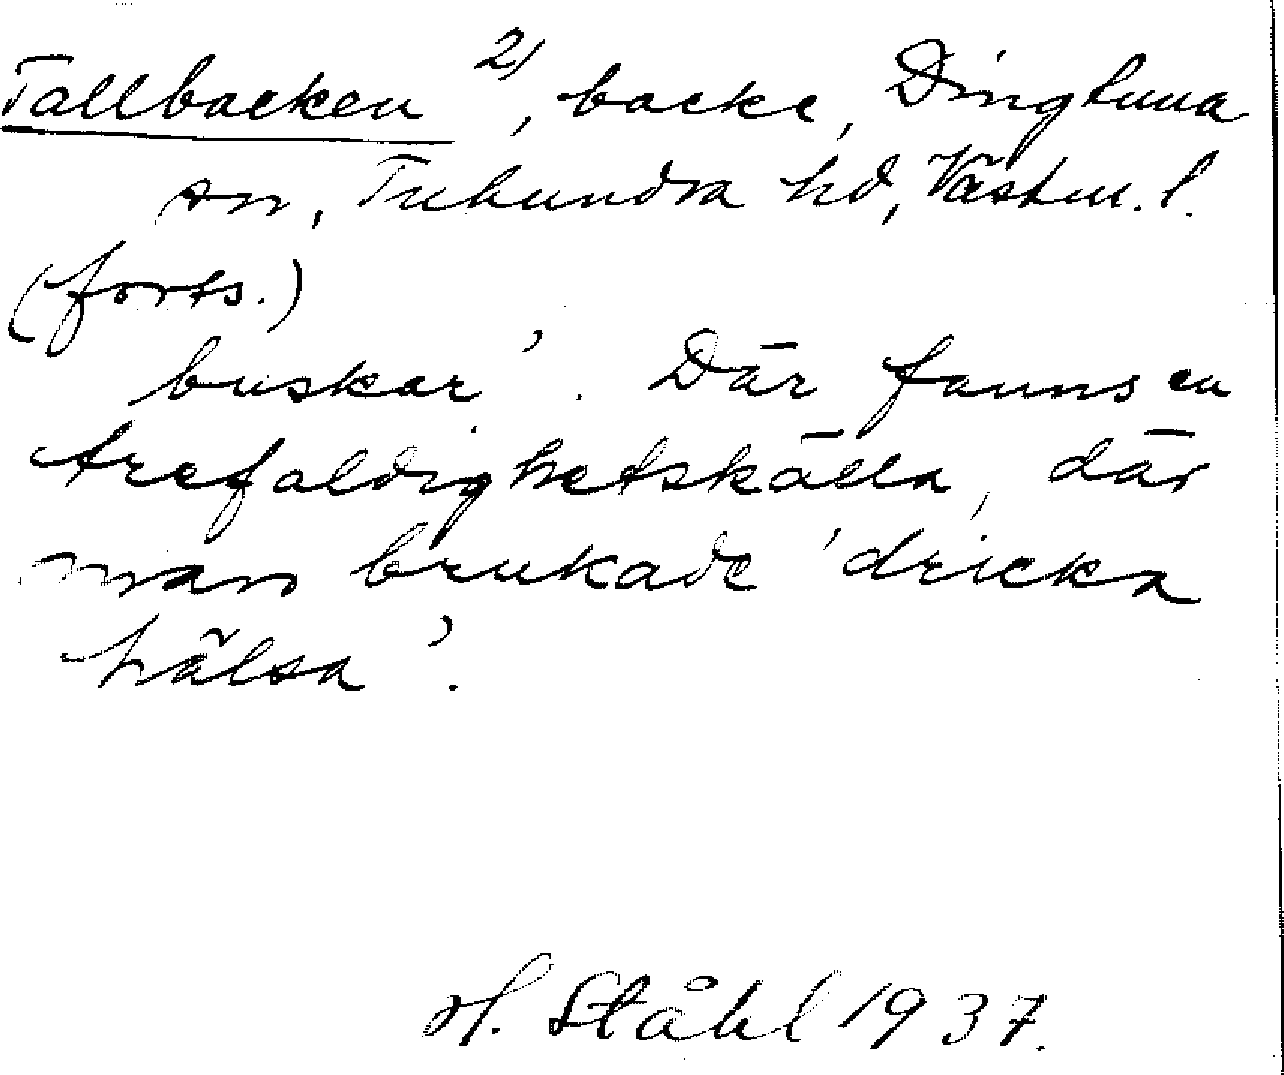 Tallbacken 2), backe, Dingtuna
sn, Tuhundra hd, Västm. l.
(forts.)
buskar'. Där fanns en
trefaldighetskälla, där
man brukade 'dricka
hälsa'.
H. Ståhl 1937.